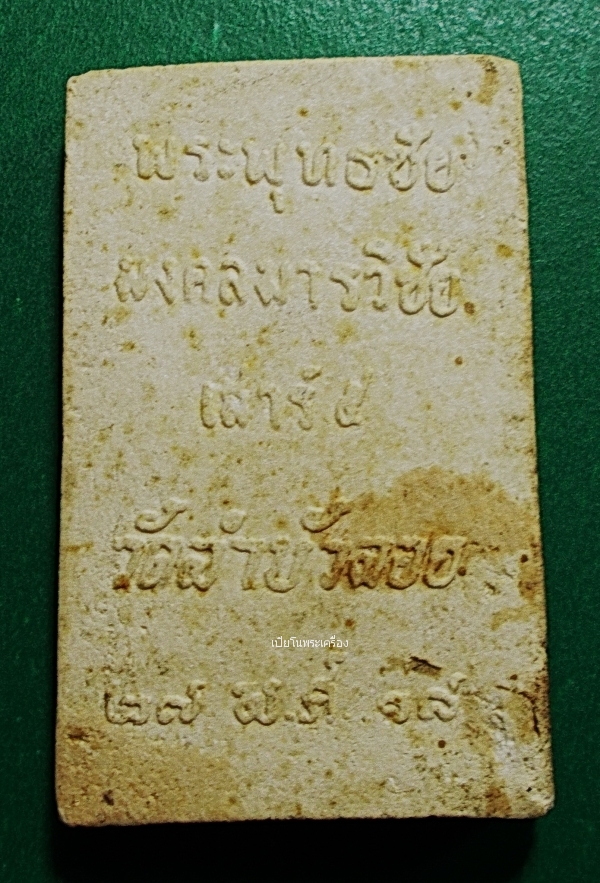 พระพุทธชัย
มงคลมารวิชัย
เสาร์ ๕
วัดลำบัวลอย
เปียโนพระเครื่อง
๒๗ พ.ค. ๑๙